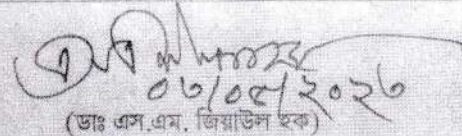 ০৩/০৫/২০২৩
(ডাঃ এস.এম. জিয়াউল হক)